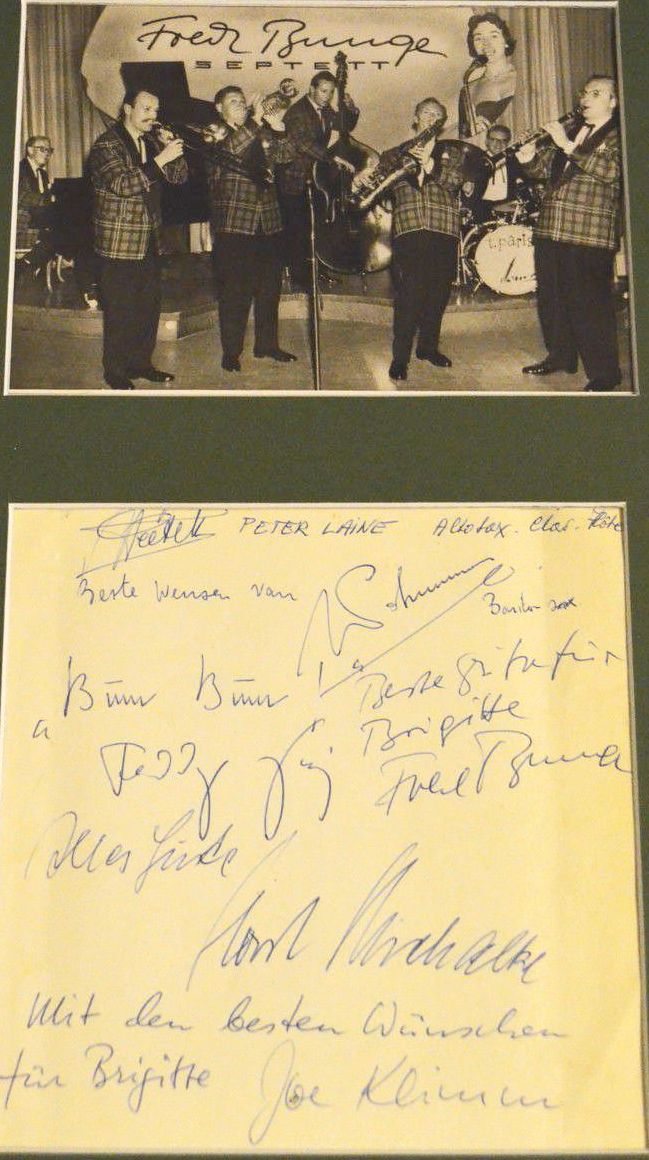 Fred Bunge
SEPTETT
t. paris
PETER LAINE Altosax. Clar. Flöte
Beste Wensen van
Bariton sax
"Bum Bum"
Beste Grüße für
Brigitte
Teddy
Fred Bunge
Alles Gute
Horst Mischalke
Mit den besten Wünschen
für Brigitte Joe Klimm